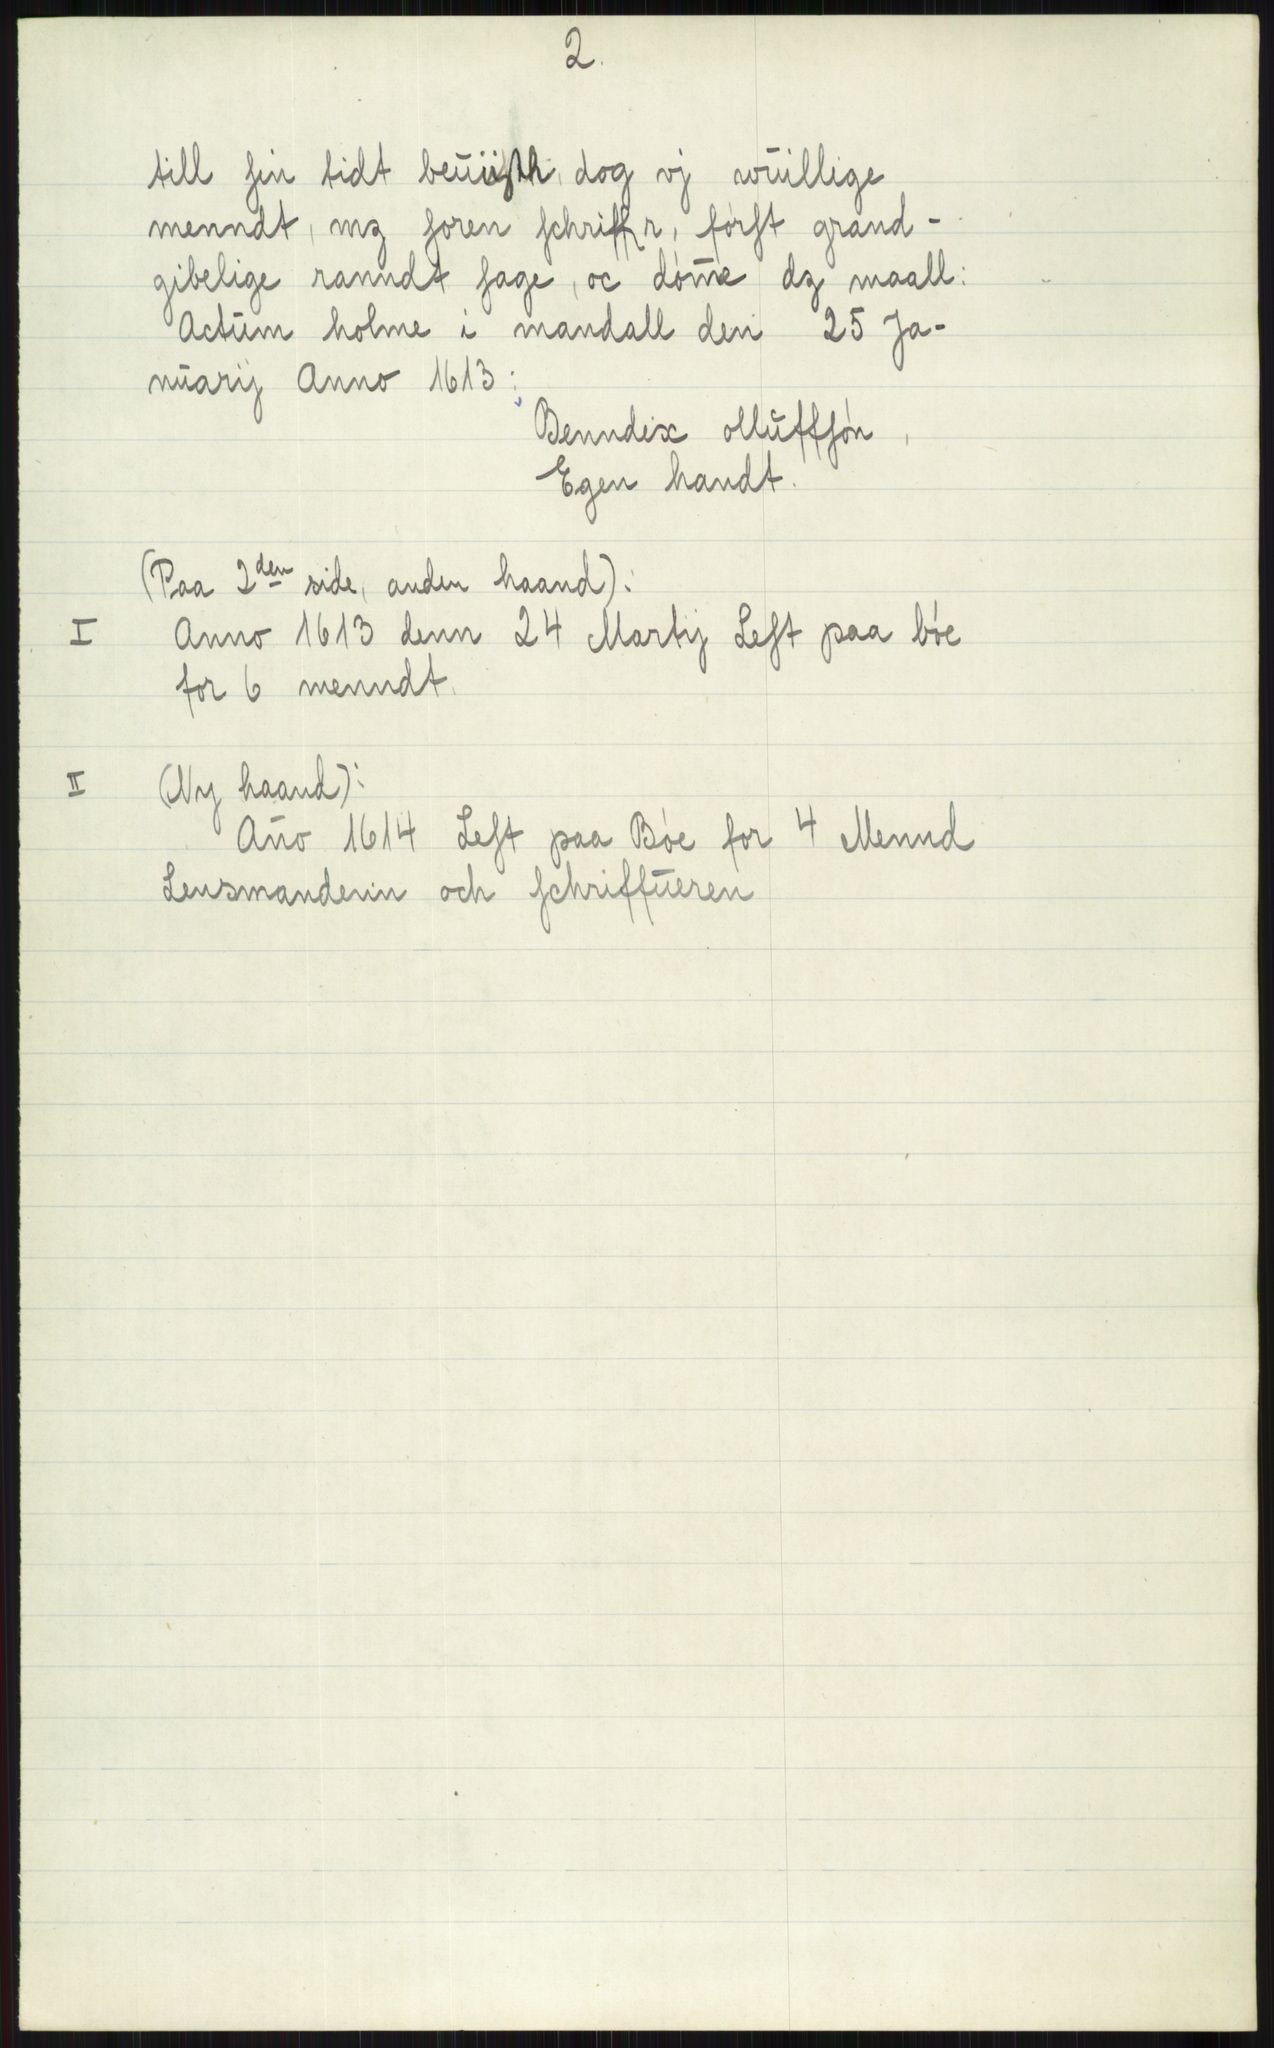 2.
till sin tidt beuiisth, dog vj wuillige
menndt, mz soren schriffr, først grand-
gibelige ranndt sage, oc døme dz maall:
Actum holme i mandall den 25 Ja-
nuarij Anno 1613:
Benndix olluffsøn,
Egen handt.
(Paa 2den side, anden haand):
I Anno 1613 denn 24 Martij Lest paa bøe
for 6 menndt.
II (Ny haand):
Año 1614 Lest paa Bøe for 4 Mennd
Lensmandenn och schriffueren